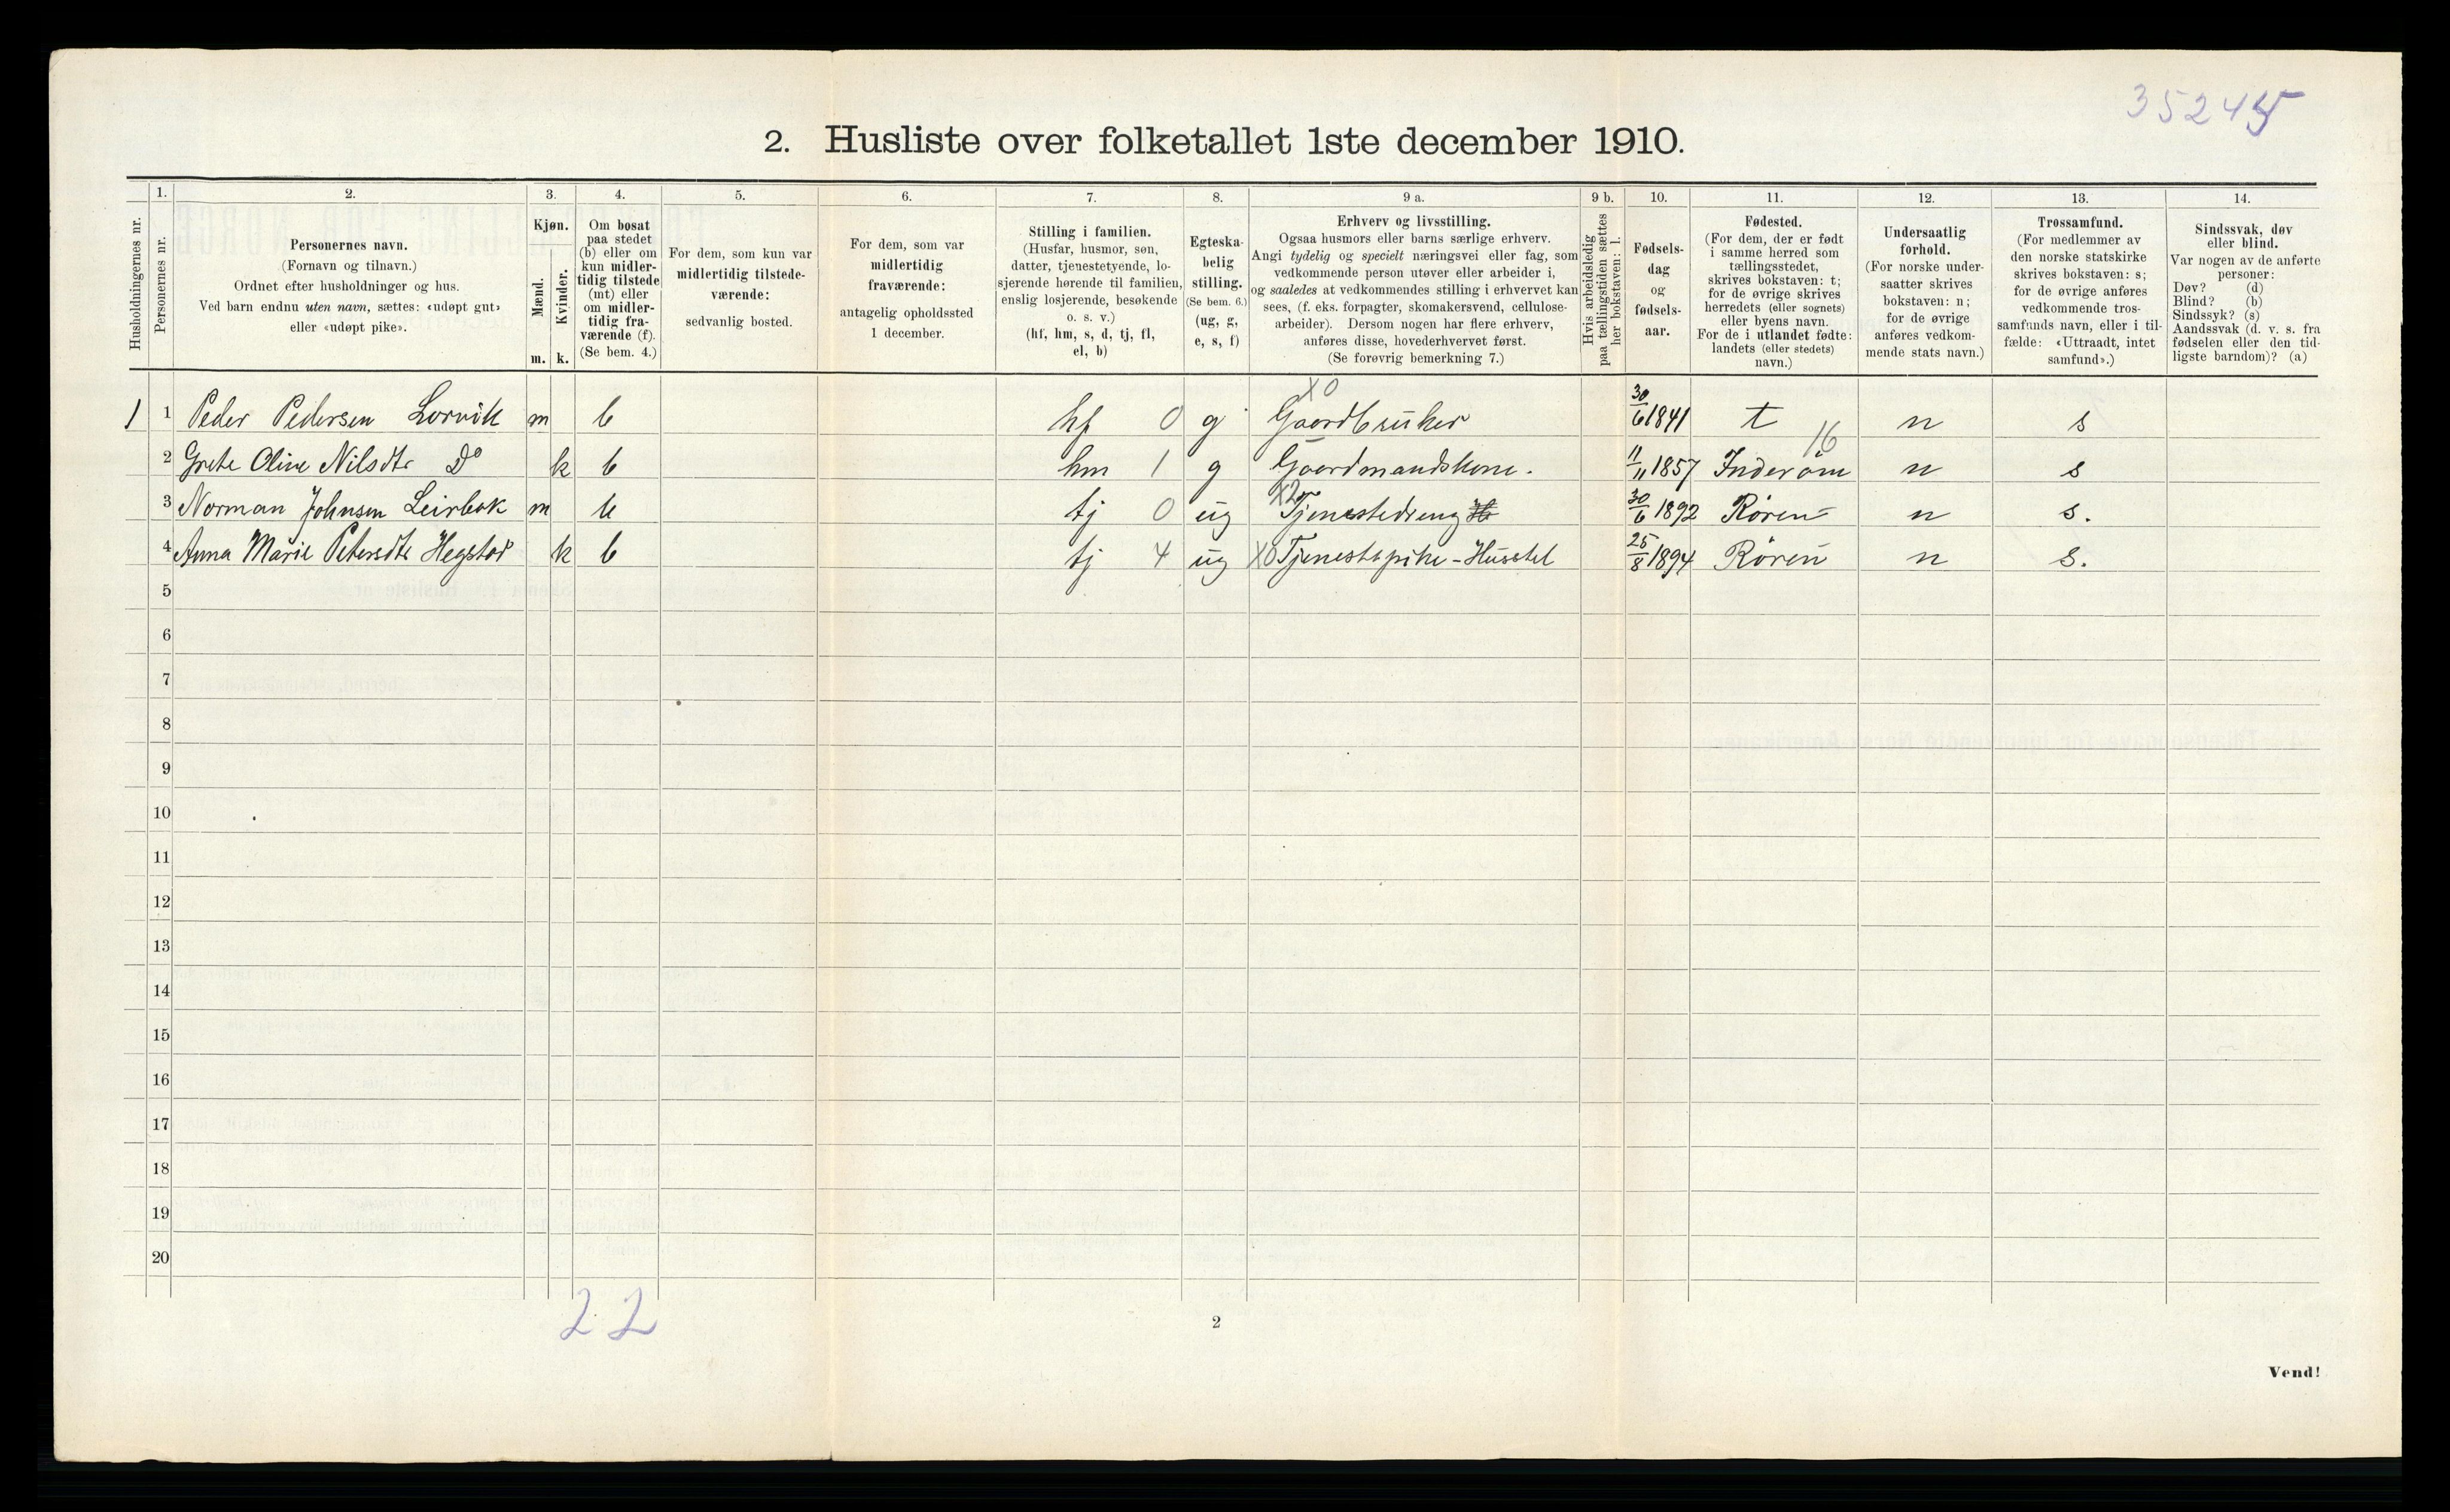 35245
2. Husliste over folketallet 1ste december 1910.
1. 2. 3. 4. 5. 6. 7. 8. 9 a. 9 b. 10. 11. 12. 13. 14.
Husholdningernes nr.
Personernes nr.
Personernes navn.
(Fornavn og tilnavn.)
Ordnet efter husholdninger og hus.
Ved barn endnu uten navn, sættes: «udøpt gut»
eller «udøpt pike».
Kjøn.
Mænd.
Kvinder.
m. k.
Om bosat
paa stedet
(b) eller om
kun midler-
tidig tilstede
(mt) eller
om midler-
tidig fra-
værende (f).
(Se bem. 4.)
For dem, som kun var
midlertidig tilstede-
værende:
sedvanlig bosted.
For dem, som var
midlertidig
fraværende:
antagelig opholdssted
1 december.
Stilling i familien.
(Husfar, husmor, søn,
datter, tjenestetyende, lo-
sjerende hørende til familien,
enslig losjerende, besøkende
o. s. v.)
(hf, hm, s, d, tj, fl,
el, b)
Egteska-
belig
stilling.
(Se bem. 6.)
(ug, g,
e, s, f)
Erhverv og livsstilling.
Ogsaa husmors eller barns særlige erhverv.
Angi tydelig og specielt næringsvei eller fag, som
vedkommende person utøver eller arbeider i,
og saaledes at vedkommendes stilling i erhvervet kan
sees, (f. eks. forpagter, skomakersvend, cellulose-
arbeider). Dersom nogen har flere erhverv,
anføres disse, hovederhvervet først.
(Se forøvrig bemerkning 7.)
Hvis arbeidsledig
paa tællingstiden sættes
her bokstaven: l.
Fødsels-
dag
og
fødsels-
aar.
Fødested.
(For dem, der er født
i samme herred som
tællingsstedet,
skrives bokstaven: t;
for de øvrige skrives
herredets (eller sognets)
eller byens navn.
For de i utlandet fødte:
landets (eller stedets)
navn.)
Undersaatlig
forhold.
(For norske under-
saatter skrives
bokstaven: n;
for de øvrige
anføres vedkom-
mende stats navn.)
Trossamfund.
(For medlemmer av
den norske statskirke
skrives bokstaven: s;
for de øvrige anføres
vedkommende tros-
samfunds navn, eller i til-
fælde: «Uttraadt, intet
samfund».)
Sindssvak, døv
eller blind.
Var nogen av de anførte
personer:
Døv? (d)
Blind? (b)
Sindssyk? (s)
Aandssvak (d. v. s. fra
fødselen eller den tid-
ligste barndom)? (a)
X0
1 1 Peder Pedersen Lorvik m b hf 0 g Gaardbruker 30/6 1841 t n s
16
2 Grete Oline Nilsdtr Do k b hm 1 g Gaardmandskone. 11/11 1857 Inderøen n s
3 Norman Johnsen Leirbak m b tj 0 ug X2 Tjenestedreng 30/6 1892 Røren n s.
4 Anna Marie Petersdtr Hegstad k b tj 4 ug X0 Tjenestepike - Husstel 25/8 1894 Røren n s.
5
6
7
8
9
10
11
12
13
14
15
16
17
18
19
20
2 2
2
Vend!